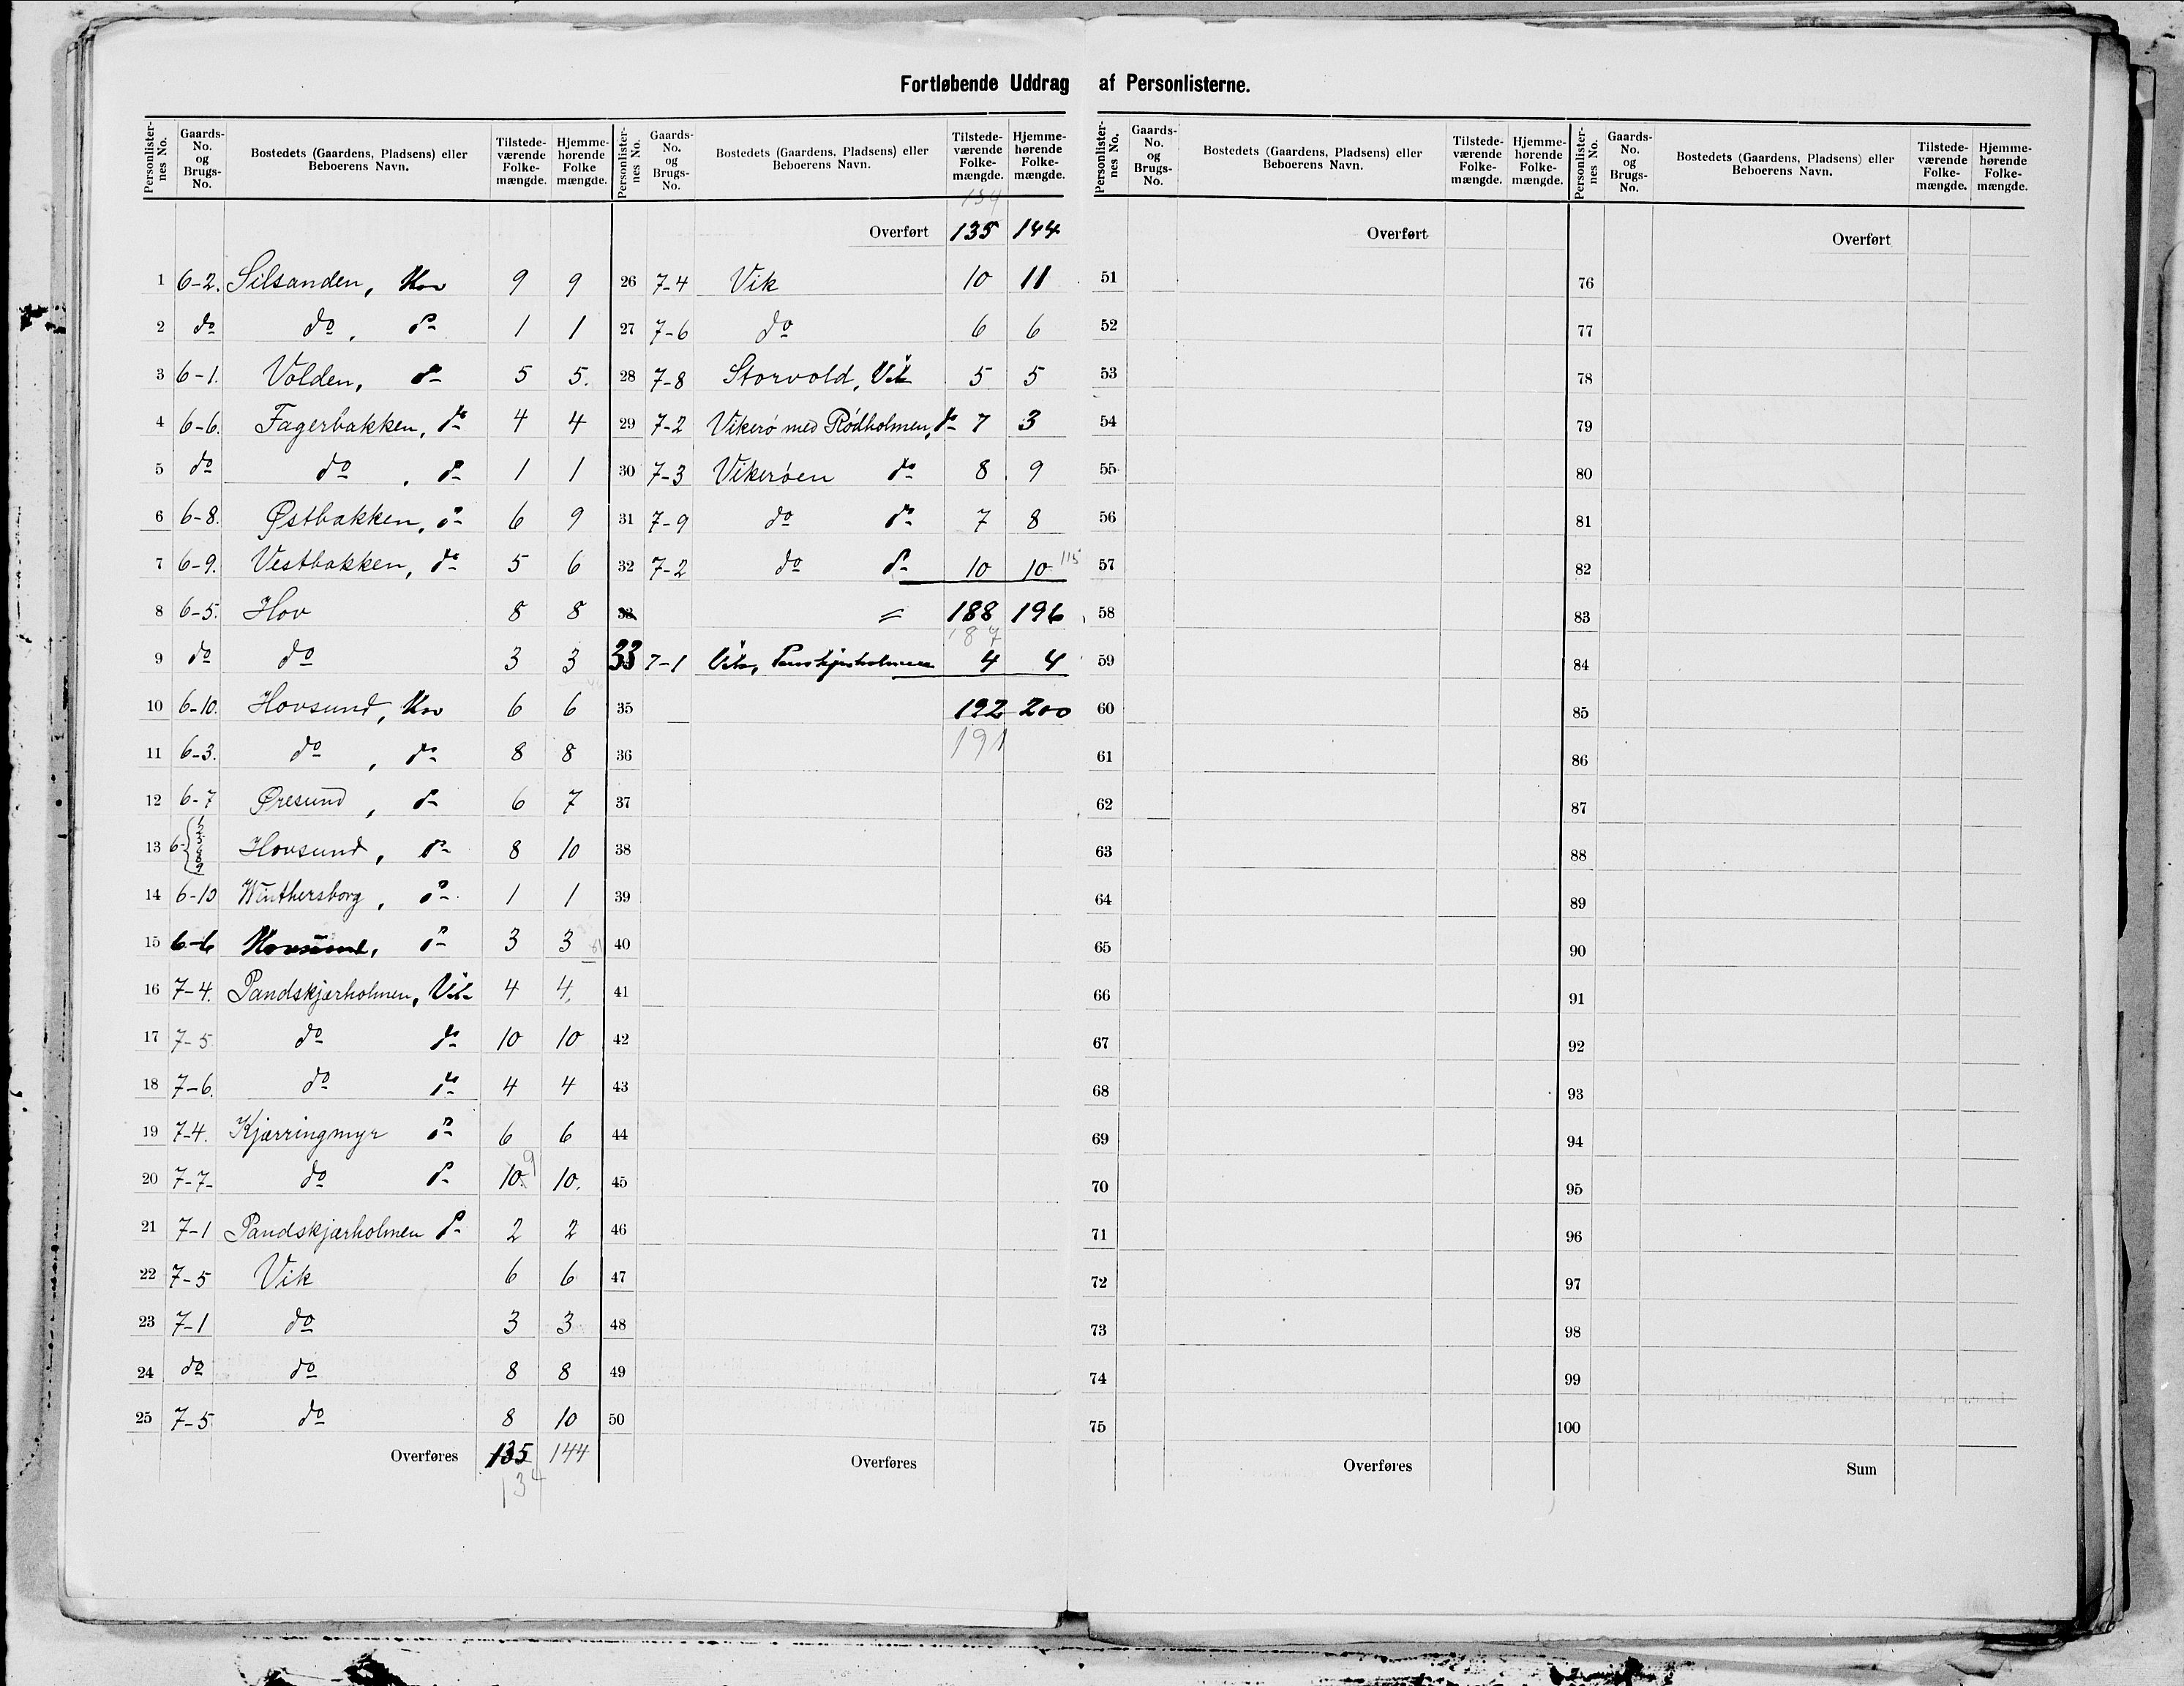 Fortløbende Uddrag af Personlisterne.
Personlister-nes No. | Gaards-No. og Brugs-No. | Bostedets (Gaardens, Pladsens) eller Beboerens Navn. | Tilstede-værende Folke-mængde. | Hjemme-hørende Folke mængde.
1 6-2. Silsanden, Hov 9 9
2 do do, do 1 1
3 6-1. Volden, do 5 5.
4 6-6. Fagerbakken, do 4 4
5 do do, do 1 1
6 6-8. Østbakken, do 6 9
7 6-9. Vestbakken, do 5 6
8 6-5. Hov 8 8
9 do do 3 3
10 6-10. Hovsund, Hov 6 6
11 6-3. do, do 8 8
12 6-7 Øresund, do 6 7
13 6- Hovsund, do 8 10
14 6-10 Winthersborg, do 1 1
15 6-6 Hovsund, do 3 3
16 7-4. Pandskjærholmen, Vik 4 4,
17 7-5 do do 10 10
18 7-6. do do 4 4
19 7-4. Kjærringmyr do 6 6
20 7-7- do do 10. 9 10.
21 7-1 Pandskjærholmen do 2 2
22 7-5 Vik 6 6
23 7-1 do 3 3
24 do do 8 8
25 7-5 do 8 10
Overføres 135 144
134
Personlister-nes No. | Gaards-No. og Brugs-No. | Bostedets (Gaardens, Pladsens) eller Beboerens Navn. | Tilstede-værende Folke-mængde. | Hjemme-hørende Folke-mængde.
134
Overført 135 144
26 7-4 Vik 10 11
27 7-6 do 6 6
28 7-8 Storvold, Vik 5 5
29 7-2 Vikerø med Rödholmen, do 7 3
30 7-3 Vikerøen do 8 9
31 7-9 do do 7 8
32 7-2 do do 10 10 115
33 = 188 196
187
33 7-1 Vik, Panskjærholmen 4 4
35 192 200
36 191
37
38
39
40
41
42
43
44
45
46
47
48
49
50
Overføres
Personlister-nes No. | Gaards-No. og Brugs-No. | Bostedets (Gaardens, Pladsens) eller Beboerens Navn. | Tilstede-værende Folke-mængde. | Hjemme-hørende Folke-mængde.
Overført
51
52
53
54
55
56
57
58
59
60
61
62
63
64
65
66
67
68
69
70
71
72
73
74
75
Overføres
Personlister-nes No. | Gaards-No. og Brugs-No. | Bostedets (Gaardens, Pladsens) eller Beboerens Navn. | Tilstede-værende Folke-mængde. | Hjemme-hørende Folke-mængde.
Overført
76
77
78
79
80
81
82
83
84
85
86
87
88
89
90
91
92
93
94
95
96
97
98
99
100
Sum